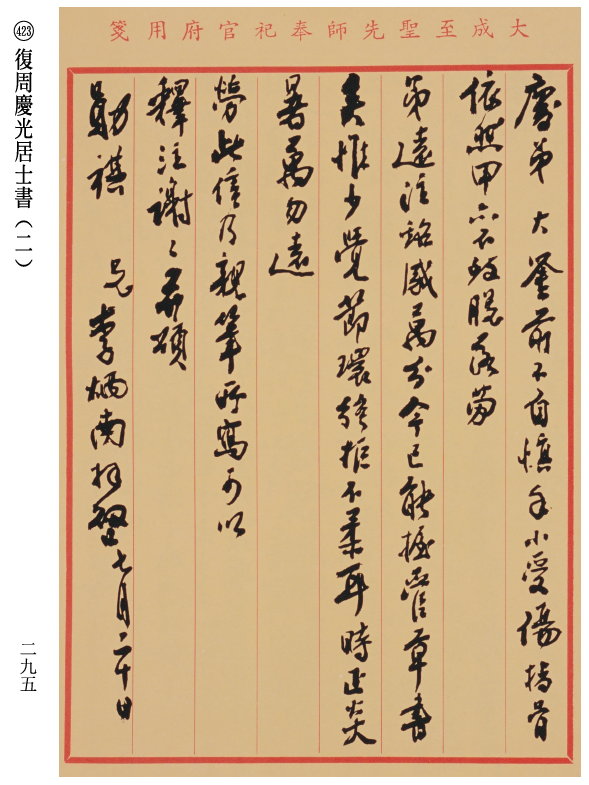 ㊷㊂ 復周慶光居士書（二）
大成至聖先師奉祀官府用箋
慶弟大鑒前不自慎手小受傷指骨
依然甲亦不致脫落勞
弟遠注銘感萬分今已能握管草書
矣惟少覺節環轉拒不柔耳時正炎
暑萬勿遠
勞此信乃親筆所寫可以
釋注謝々 頌
勛祺 兄李炳南拜 七月二十日
二九五